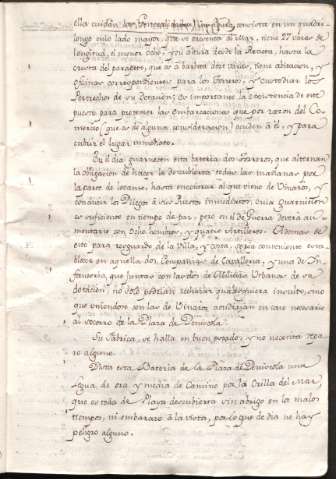 longo cuio lado mayor, que se presenta al Mar, tiene 27 varas de
longitud, el menor ocho, y su altura desde la Rereta, hasta la
cresta del parapeto, que es a barbeta diez varas, tiene abitacion, y
oficinas correspondientes para los Torreros, y custodiar los
Pertrechos de su Dotacion; Es importante la existencia de este
puesto para proteger las Embarcaciones que por razon del Co-
mercio, (que es de alguna consideracion) acuden à él, y para
cubrir el lugar inmediato.
En el dia guarnecen esta bateria dos Torreros, que alternan
la obligacion de hacer la descubierta todas las mañanas por
la parte de levante, hasta encontrar al que viene de Vinaros, y
conducir los Pliegos à sus Puestos inmediatos. Esta Guarnicion
es suficiente en tiempo de paz, pero en el de Guerra deverà au-
mentarse con ocho hombres, y quatro Artilleros. Ademas de
esto para resguardo de la Villa, y costa, seria conveniente esta-
blecer en aquella dos Compañias de Cavalleria, y una de In-
fanteria, que juntas con las dos de Milicias Urbanas de su
dotacion, no solo podrian rechazar qualesquiera insulto, sino
que uniendose con las de Vinaròs, acudirian en caso necesario
al socorro de la Plaza de Peniscola.
Su Fabrica, se halla en buen estado, y no necesita repa-
ro alguno.
Dista esta Bateria de la Plaza de Peniscola una
legua de ora y media de Camino por la Orilla del Mar
que es toda de Playa descubierta sin abrigo en los malos
tiempos, ni embarazo à la vista, por lo que de dia no hay
peligro alguno.